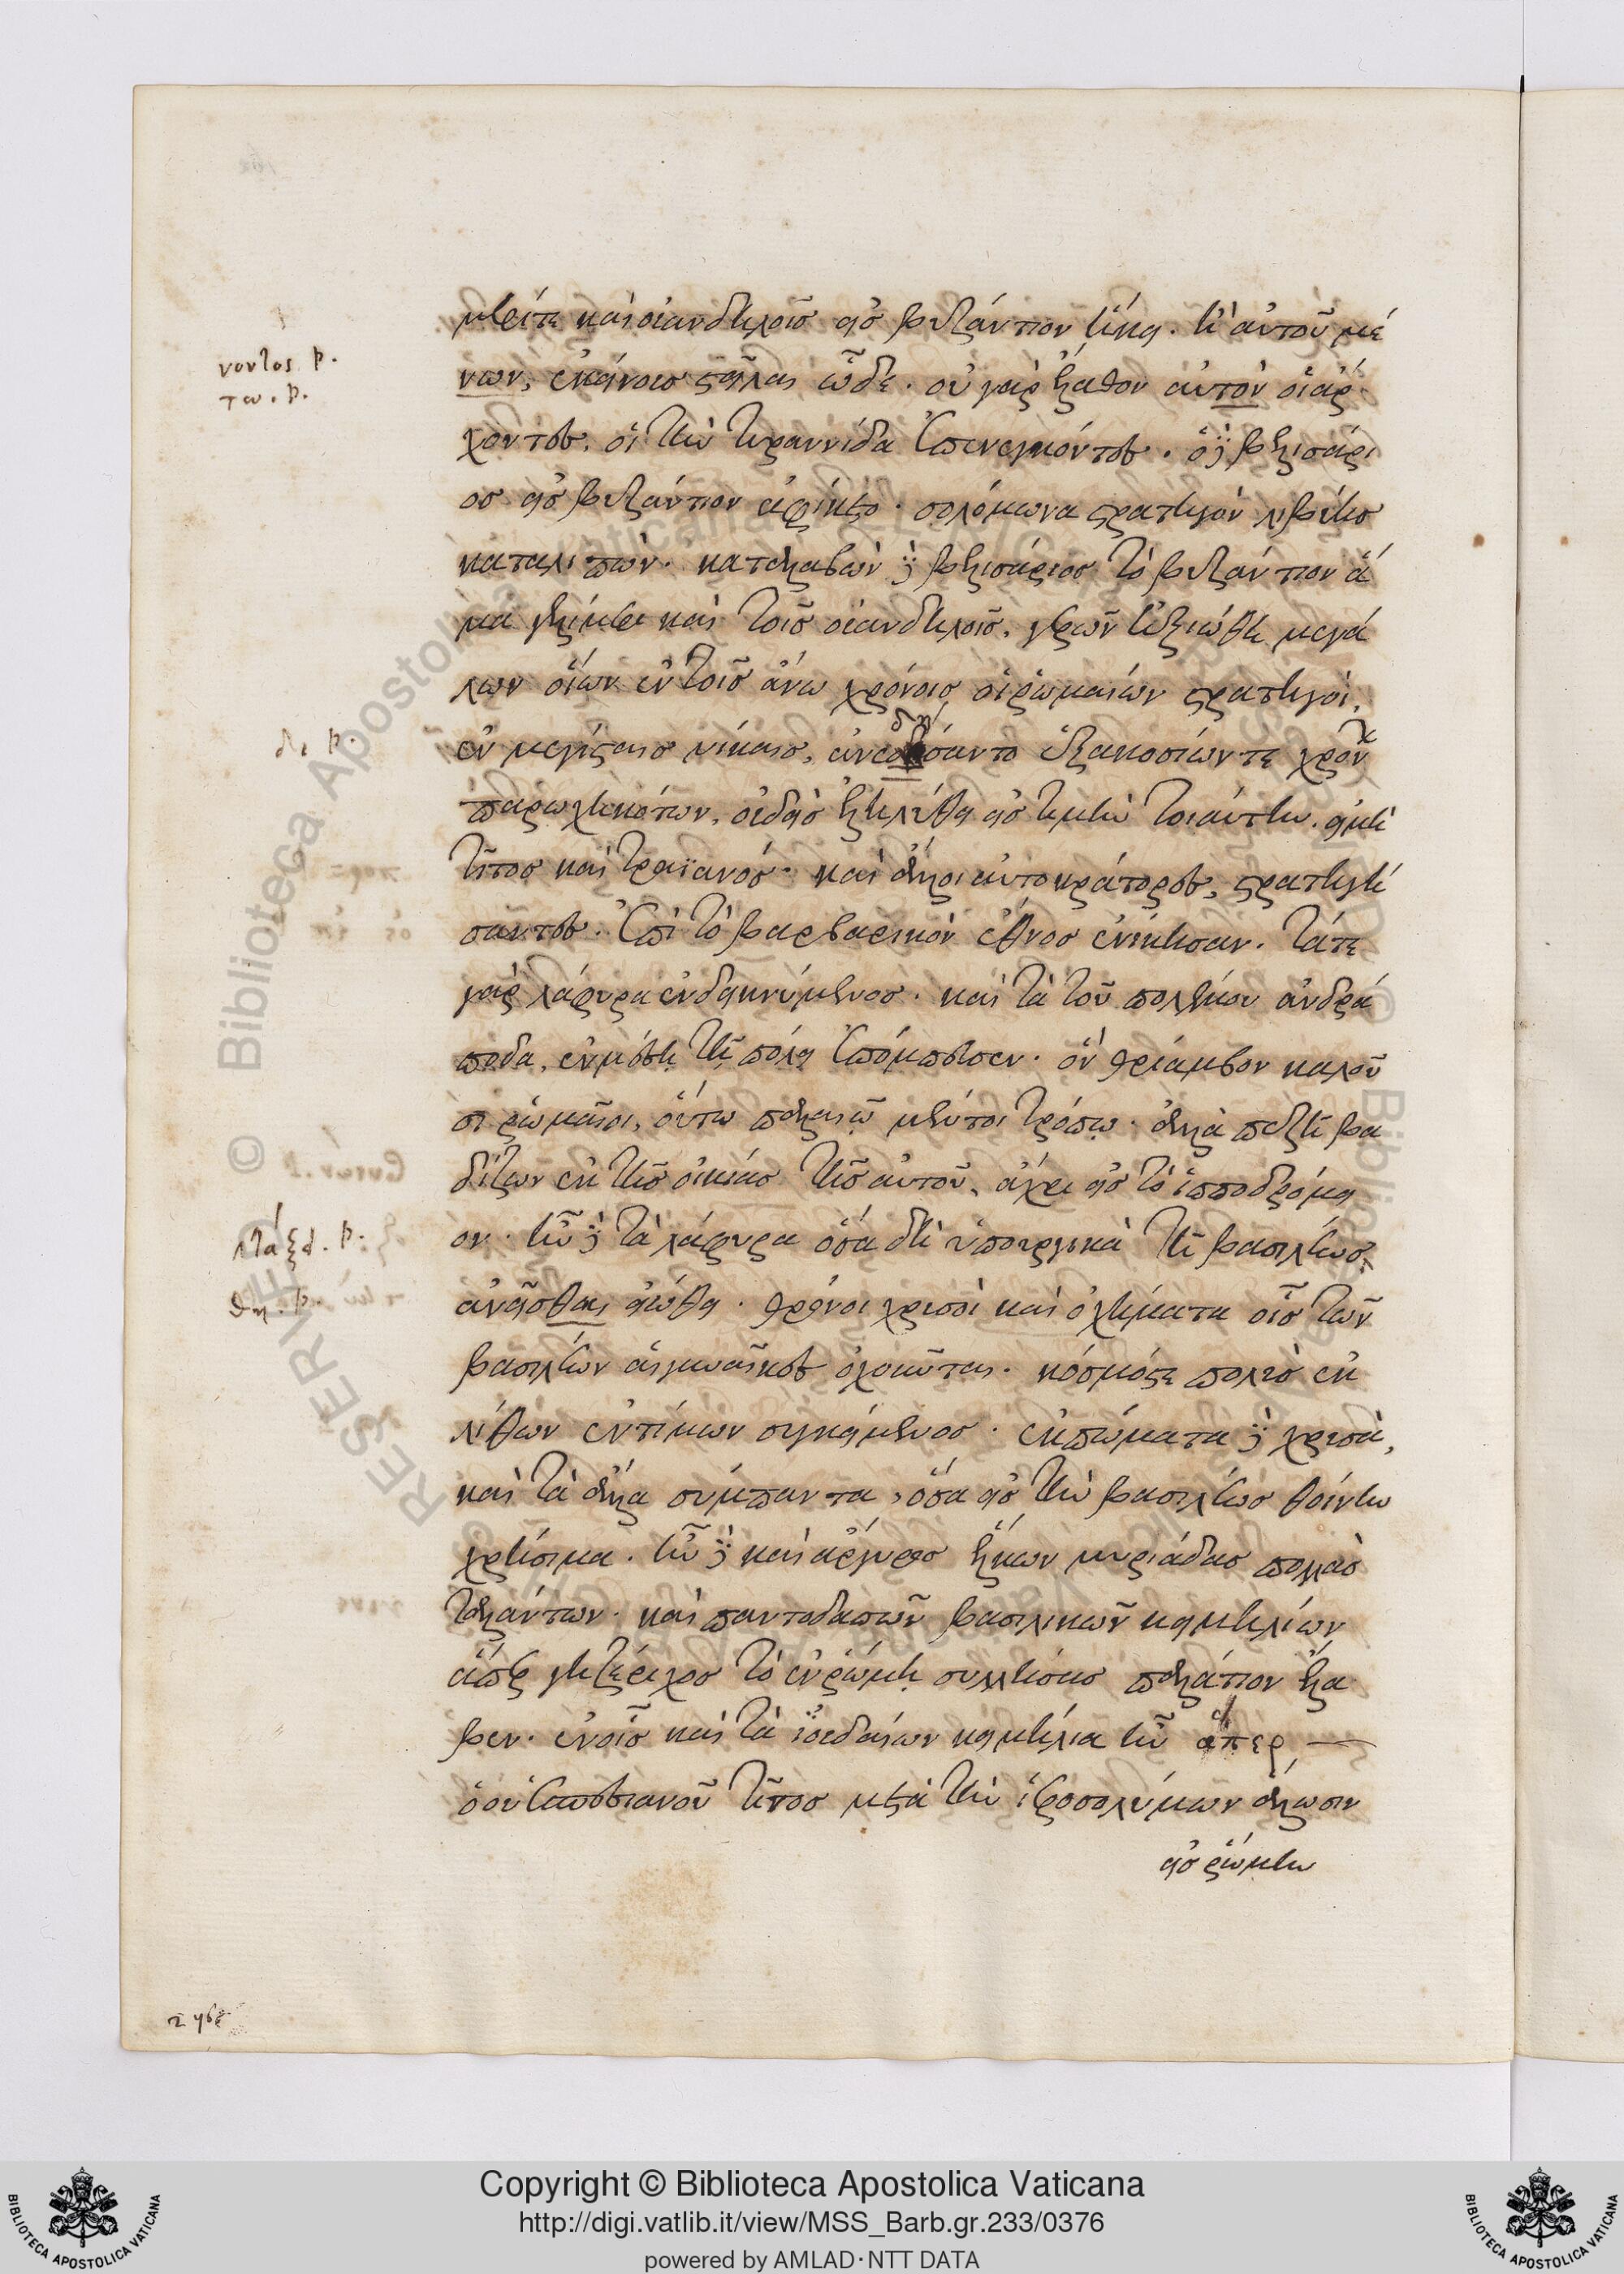 μερίτε καὶ οὐανδήλοις εἰς βυζάντιον ἥκει. ἢ αὐτοῦ μέ
νων, ἐκείνους στεῖλαι ὧδε. οὐ γὰρ ἔλαθον αὐτὸν οἱ ἄρ
χοντες, οἱ τὴν τυραννίδα ἐπενεγκόντες. ὁ δὲ βελισάρι
ος εἰς βυζάντιον ἀφίκετο. σολόμωνα στρατηγὸν λιβύης
καταλιπών. καταλαβὼν δὲ βελισάριος τὸ βυζάντιον ἅ
μα γελίμερι καὶ τοῖς οὐανδήλοις, γερῶν ἠξιώθη μεγά
λων οἵων ἐν τοῖς ἄνω χρόνοις οἱ ῥωμαίων στρατηγοὶ,
ἐν μεγίσταις νίκαις, ἀνεδήσαντο ἑξακοσίων τε χρόνων
παρῳχηκότων, οὐδεὶς ἐληλύθει εἰς τιμὴν τοιαύτην. εἰ μὴ
τίτος καὶ τραϊανός. καὶ ἄλλοι αὐτοκράτορες, στρατηγή
σαντες. ἐπὶ τὸ βαρβαρικὸν ἔθνος ἐνίκησαν. τά τε
γὰρ λάφυρα ἐνδεικνύμενος. καὶ τὰ τοῦ πολέμου ἀνδρά
ποδα, ἐν μέσῃ τῇ πόλει ἐπόμπευσεν. ὃν θρίαμβον καλοῦ
σι ῥωμαῖοι, οὕτω παλαιῷ μέντοι τρόπῳ. ἀλλὰ πεζῇ βα
δίζων ἐκ τῆς οἰκίας τῆς αὐτοῦ, ἄχρι εἰς τὸ ἱπποδρόμει
ον. ἦν δὲ τὰ λάφυρα ὅσα δὴ ὑπουργικὰ τῇ βασιλέως
ἀνεῖσθαι εἰώθει. θρόνοι χρυσοῖ καὶ ὀχήματα οἷς τῶν
βασιλέων αἱ γυναῖκες ὀχοῦνται. κόσμός τε πολὺς ἐκ
λίθων ἐντίμων συγκείμενος. ἐκπώματα δὲ χρυσᾶ,
καὶ τὰ ἄλλα σύμπαντα, ὅσα εἰς τὴν βασιλέως θοίνην
χρήσιμα. ἦν δὲ καὶ ἄργυρος ἕλκων μυριάδας πολλὰς
ταλάντων. καὶ παντοδαπῶν βασιλικῶν κειμηλίων
ἅπερ γηζέριχος τὸ ἐν ῥώμῃ συλήσας παλάτιον ἔλα
βεν. ἐν οἷς καὶ τὰ ἰουδαίων κειμήλια ἦν ἅπερ
ὁ οὐεσπεσιανοῦ τίτος μετὰ τὴν ἱεροσολύμων ἅλωσιν
εἰς ῥώμην
νοντος. P.
τω. P.
δι P.
θη. P.